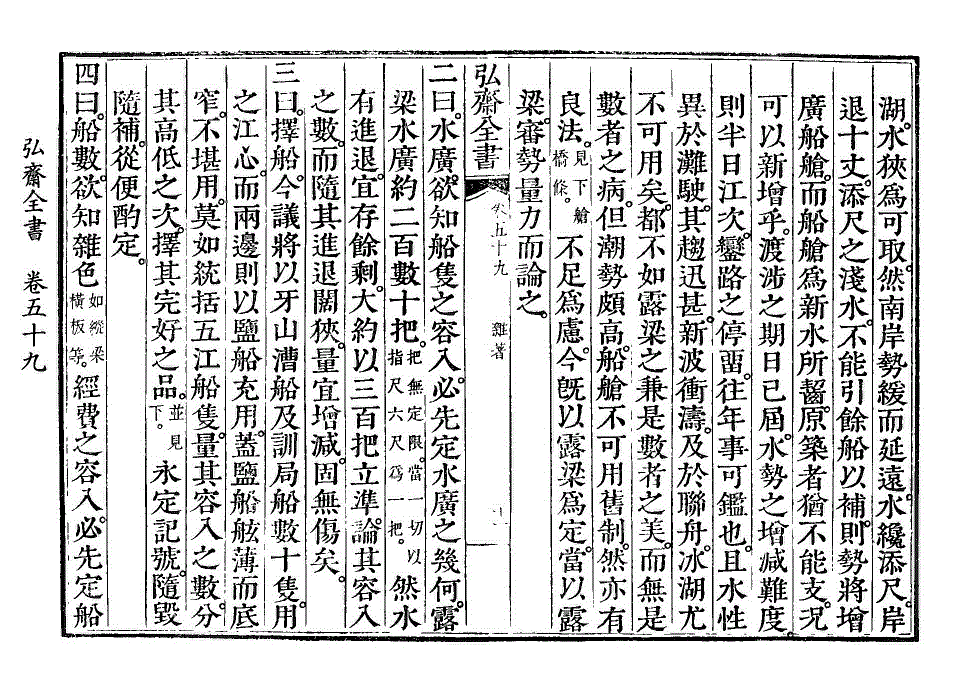 湖水狹爲可取。然南岸勢緩而延遠。水纔添尺。岸
退十丈。添尺之淺水。不能引餘船以補。則勢將增
廣船艙。而船艙爲新水所齧。原築者猶不能支。况
可以新增乎。渡涉之期日已屆。水勢之增减難度。
則半日江次。鑾路之停留。往年事可鑑也。且水性
異於灘駛。其趨迅甚。新波衝濤。及於聯舟。冰湖尤
不可用矣。都不如露梁之兼是數者之美。而無是
數者之病。但潮勢頗高。船艙不可用舊制。然亦有
良法。見下艙橋條。不足爲慮。今旣以露梁爲定。當以露
梁。審勢量力而論之。
弘齋全書 卷五十九 雜著
二曰。水廣。欲知船隻之容入。必先定水廣之幾何。露
梁水廣約二百數十把。把無定限。當一切以指尺六尺爲一把。然水
有進退。宜存餘剩。大約以三百把立準。論其容入
之數。而隨其進退闊狹。量宜增减。固無傷矣。
三曰。擇船。今議將以牙山漕船及訓局船數十隻。用
之江心。而兩邊則以鹽船充用。蓋鹽船舷薄而底
窄。不堪用。莫如統括五江船隻。量其容入之數。分
其高低之次。擇其完好之品。並見下。永定記號。隨毀
隨補。從便酌定。
四曰。船數。欲知雜色如縱梁橫板等。經費之容入。必先定船
弘齋全書 卷五十九